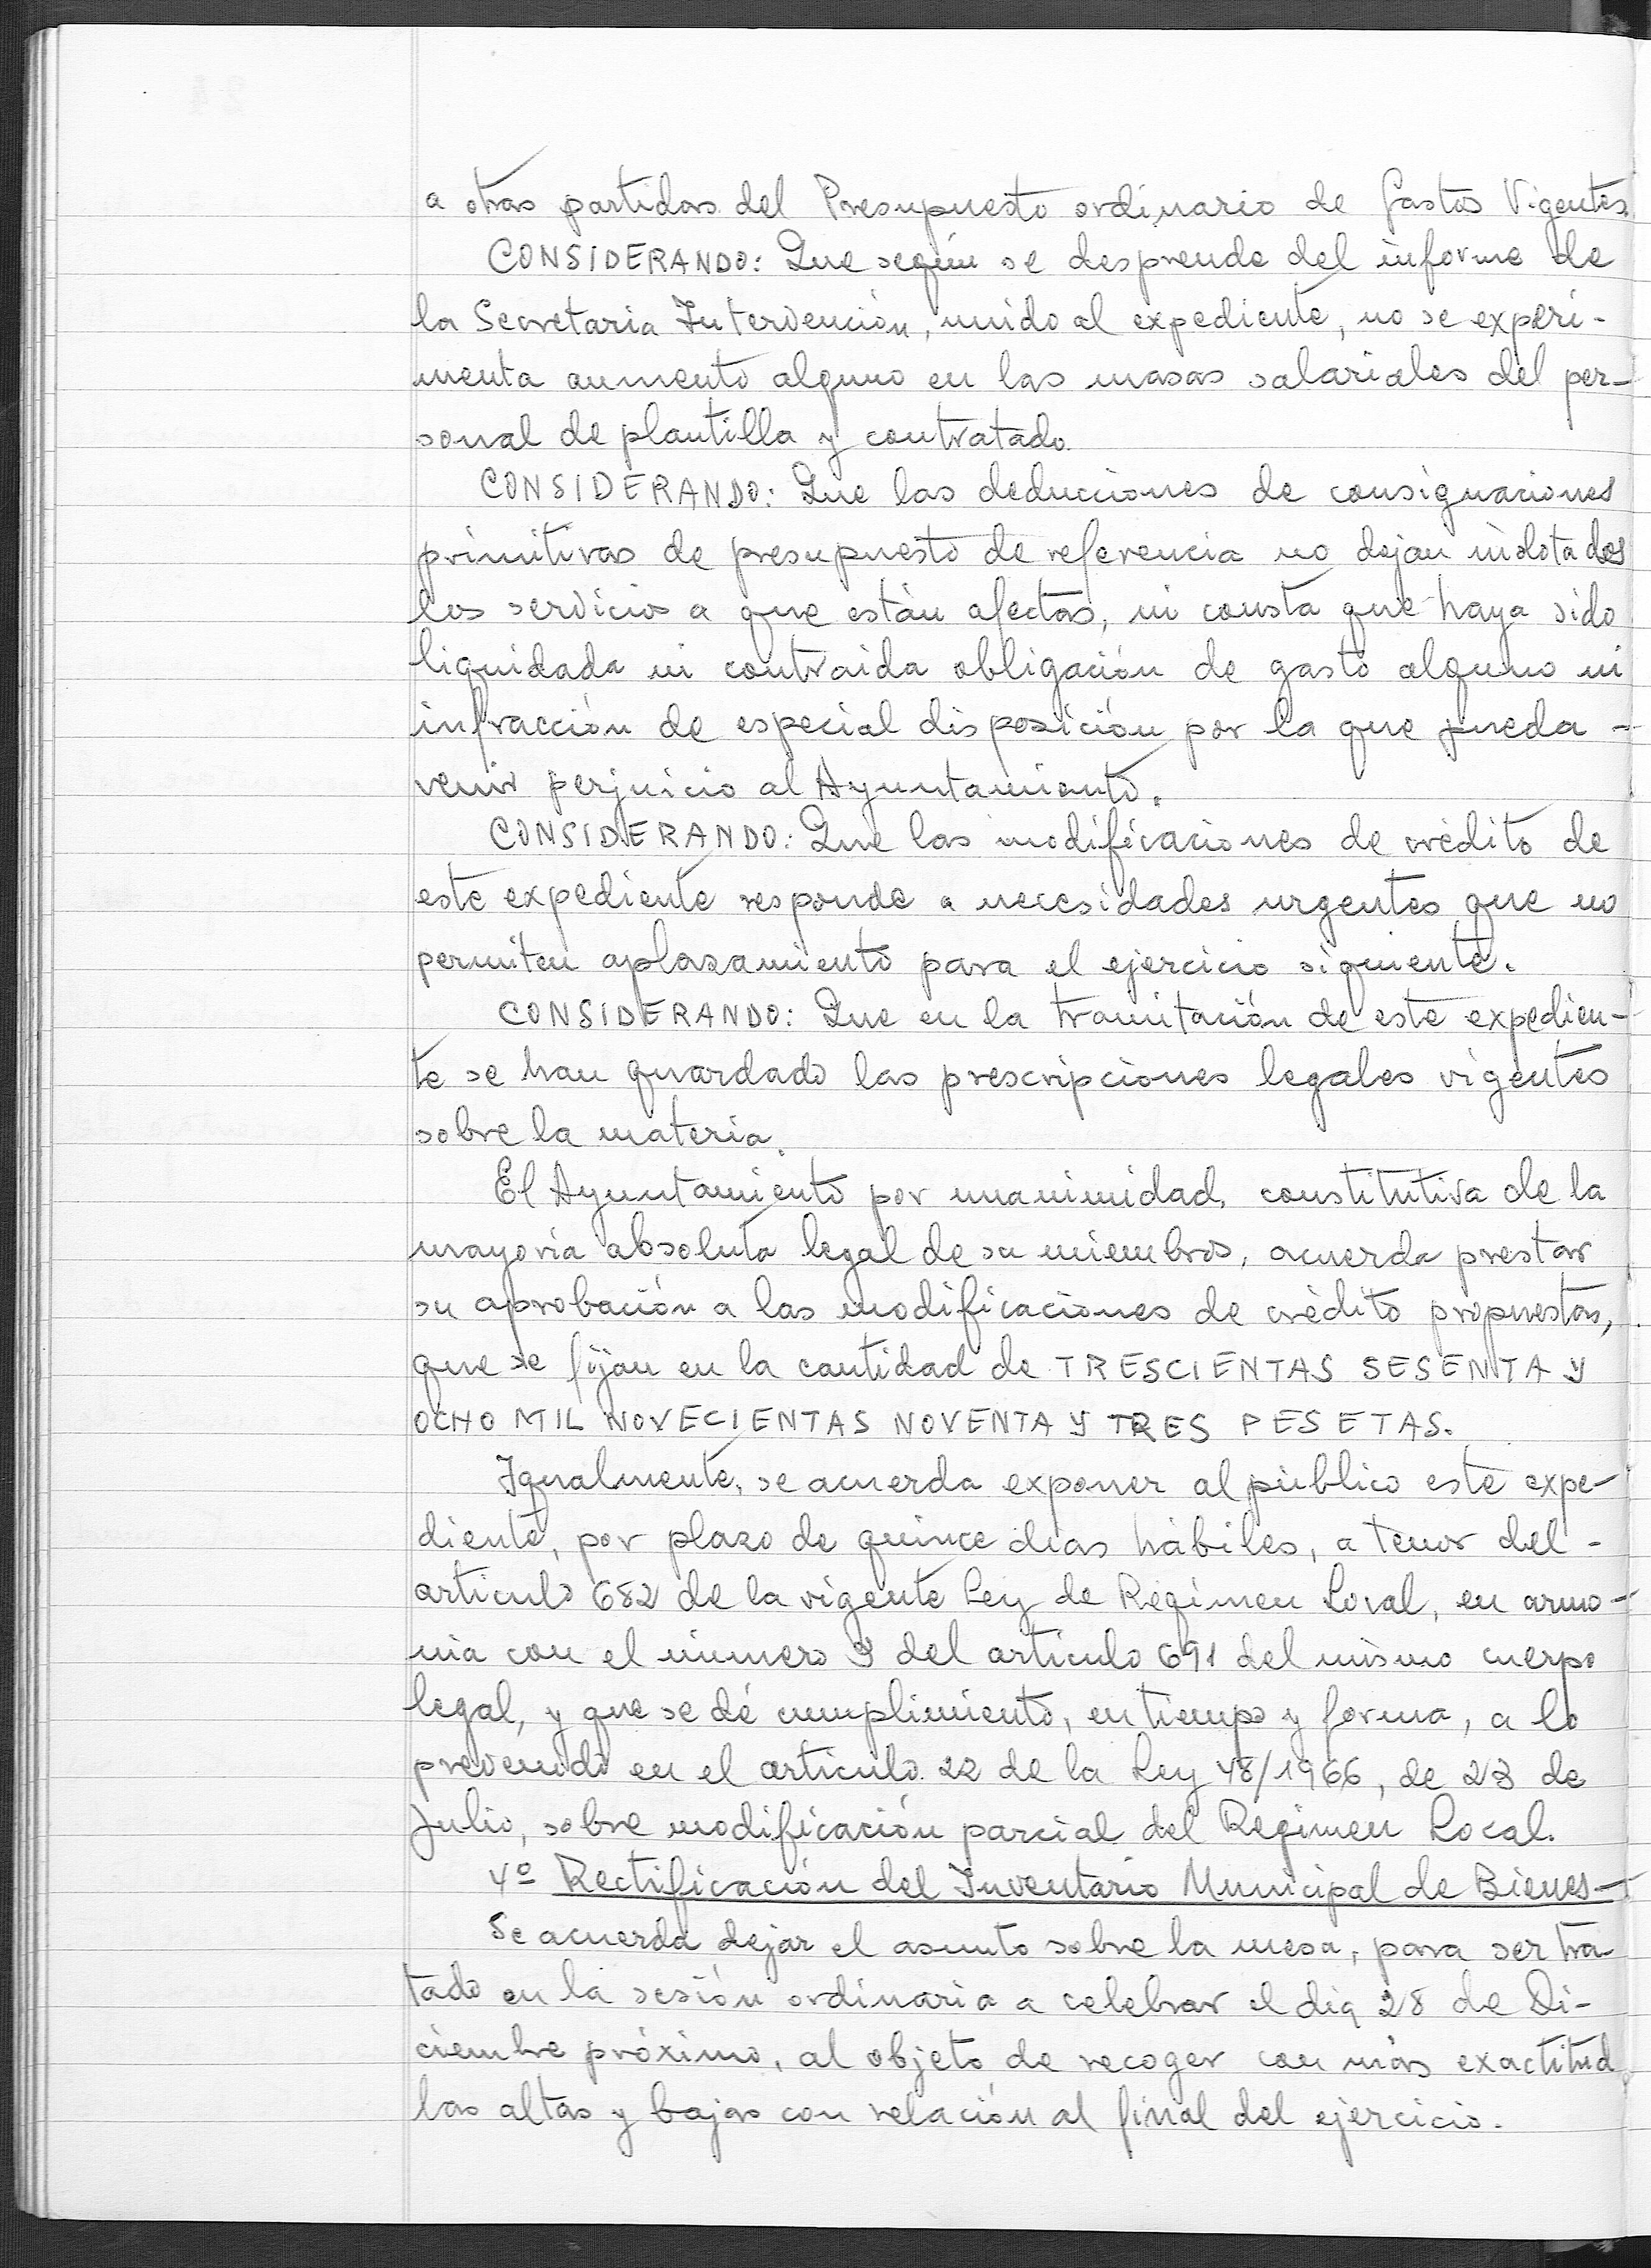 a otras partidas del Presupuesto ordinario de Gastos Vigentes.
CONSIDERANDO: Que según se desprende del informe de
la Secretaria Intervención, unido al expediente, no se experi-
menta aumento alguno en las masas salariales del per-
sonal de plantilla y contratado.
CONSIDERANDO: Que las deducciones de consignaciones
primitivas de presupuesto de referencia no dejan indotados
los servicios a que están afectas, ni consta que haya sido
liquidada ni contraida obligación de gasto alguno ni
infracción de especial disposición por la que pueda -
venir perjuicio al Ayuntamiento.
CONSIDERANDO: Que las modificaciones de crédito de
este expediente responde a necesidades urgentes que no
permiten aplazamiento para el ejercicio siguiente.
CONSIDERANDO: Que en la tramitación de este expedien-
te se han guardado las prescripciones legales vigentes
sobre la materia.
El Ayuntamiento por unanimidad, constitutiva de la
mayoría absoluta legal de su miembros, acuerda prestar
su aprobación a las modificaciones de crédito propuestas,
que se fijan en la cantidad de TRESCIENTAS SESENTA Y
OCHO MIL NOVECIENTAS NOVENTA Y TRES PESETAS.
Igualmente, se acuerda exponer al público este expe-
diente, por plazo de quince días hábiles, a tenor del -
articulo 682 de la vigente Ley de Régimen Local, en armo-
nia con el número 3 del articulo 691 del mismo cuerpo
legal, y que se dé cumplimiento, en tiempo y forma, a lo
prevenido en el articulo 22 de la Ley 48/1966, de 23 de
Julio, sobre modificación parcial del Regimen Local.
4º Rectificación del Inventario Municipal de Bienes-
Se acuerda dejar el asunto sobre la mesa, para ser tra-
tado en la sesión ordinaria a celebrar el dia 28 de Di-
ciembre próximo, al objeto de recoger con más exactitud
las altas y bajas con relación al final del ejercicio.